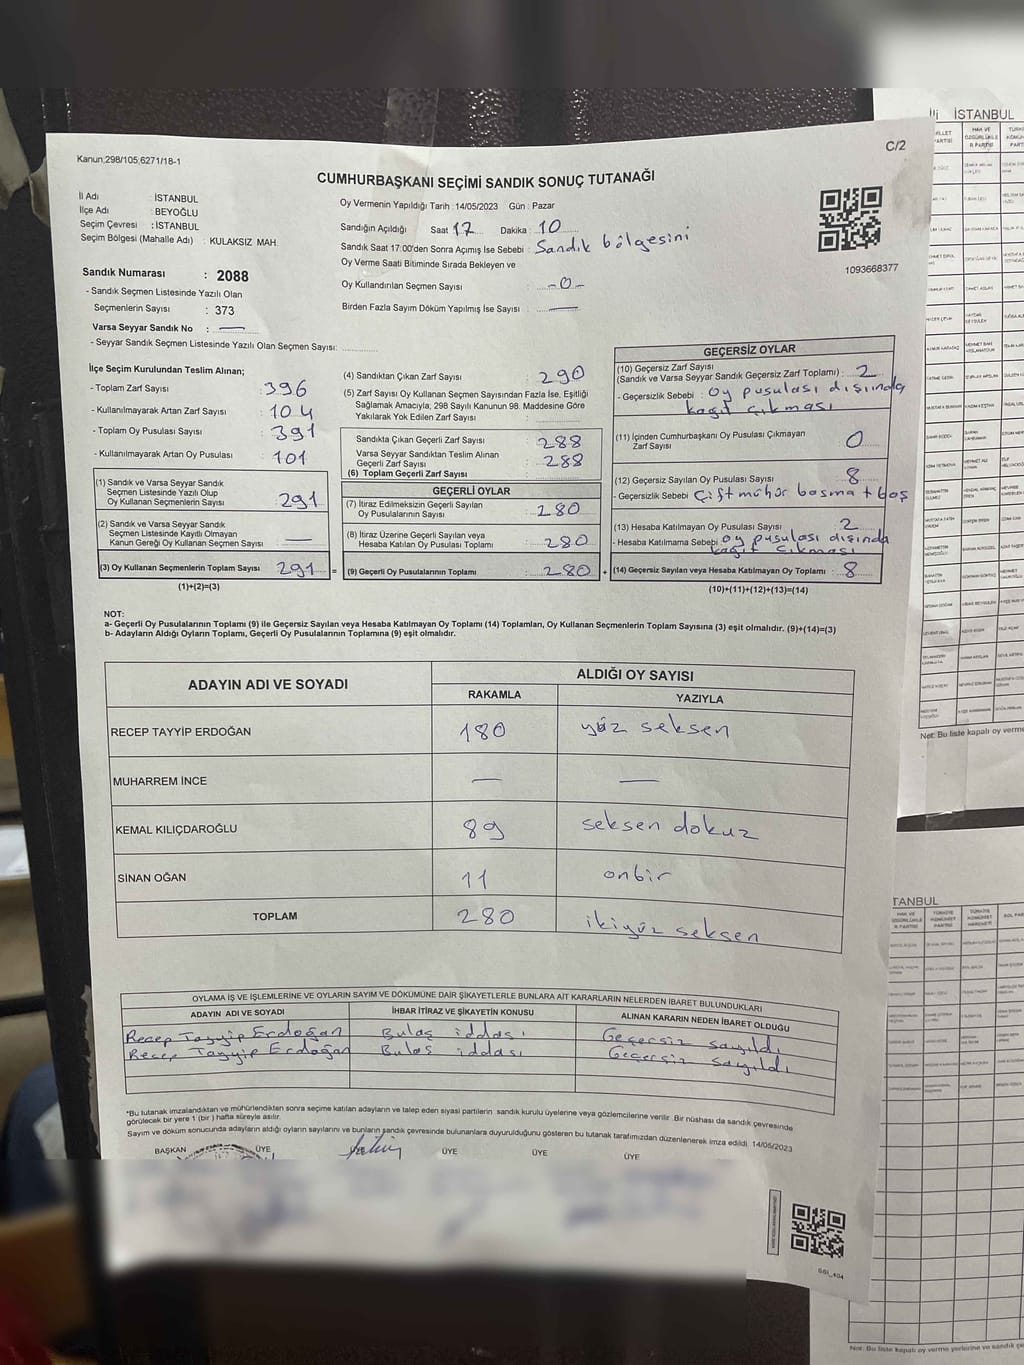 C/2
Kanun;298/105,6271/18-1
CUMHURBAŞKANI SEÇİMİ SANDIK SONUÇ TUTANAĞI
İl Adı : İSTANBUL
İlçe Adı : BEYOĞLU
Seçim Çevresi : İSTANBUL
Seçim Bölgesi (Mahalle Adı) : KULAKSIZ MAH.
Sandık Numarası : 2088
- Sandık Seçmen Listesinde Yazılı Olan
Seçmenlerin Sayısı : 373
Varsa Seyyar Sandık No : —
- Seyyar Sandık Seçmen Listesinde Yazılı Olan Seçmen Sayısı:
Oy Vermenin Yapıldığı Tarih : 14/05/2023 Gün : Pazar
Sandığın Açıldığı Saat 17 Dakika : 10
Sandık Saat 17:00'den Sonra Açımış İse Sebebi : Sandık bölgesini
Oy Verme Saati Bitiminde Sırada Bekleyen ve
Oy Kullandırılan Seçmen Sayısı : -0-
Birden Fazla Sayım Döküm Yapılmış İse Sayısı : —
1093668377
İlçe Seçim Kurulundan Teslim Alınan;
- Toplam Zarf Sayısı : 396
- Kullanılmayarak Artan Zarf Sayısı : 104
- Toplam Oy Pusulası Sayısı : 391
- Kullanılmayarak Artan Oy Pusulası : 101
(1) Sandık ve Varsa Seyyar Sandık
Seçmen Listesinde Yazılı Olup
Oy Kullanan Seçmenlerin Sayısı : 291
(2) Sandık ve Varsa Seyyar Sandık
Seçmen Listesinde Kayıtlı Olmayan
Kanun Gereği Oy Kullanan Seçmen Sayısı : —
(3) Oy Kullanan Seçmenlerin Toplam Sayısı : 291
(1)+(2)=(3)
(4) Sandıktan Çıkan Zarf Sayısı : 290
(5) Zarf Sayısı Oy Kullanan Seçmen Sayısından Fazla İse, Eşitliği
Sağlamak Amacıyla; 298 Sayılı Kanunun 98. Maddesine Göre
Yakılarak Yok Edilen Zarf Sayısı :
Sandıkta Çıkan Geçerli Zarf Sayısı : 288
Varsa Seyyar Sandıktan Teslim Alınan
Geçerli Zarf Sayısı : 288
(6) Toplam Geçerli Zarf Sayısı
GEÇERLİ OYLAR
(7) İtiraz Edilmeksizin Geçerli Sayılan
Oy Pusulalarının Sayısı : 280
(8) İtiraz Üzerine Geçerli Sayılan veya
Hesaba Katılan Oy Pusulası Toplamı : 280
= (9) Geçerli Oy Pusulalarının Toplamı : 280
GEÇERSİZ OYLAR
(10) Geçersiz Zarf Sayısı
(Sandık ve Varsa Seyyar Sandık Geçersiz Zarf Toplamı) : 2
- Geçersizlik Sebebi : Oy pusulası dışında
kağıt çıkması
(11) İçinden Cumhurbaşkanı Oy Pusulası Çıkmayan
Zarf Sayısı : 0
(12) Geçersiz Sayılan Oy Pusulası Sayısı : 8
- Geçersizlik Sebebi : Çift mühür basma + boş
(13) Hesaba Katılmayan Oy Pusulası Sayısı : 2
- Hesaba Katılmama Sebebi : Oy pusulası dışında
kağıt çıkması
+ (14) Geçersiz Sayılan veya Hesaba Katılmayan Oy Toplamı : 8
(10)+(11)+(12)+(13)=(14)
NOT:
a- Geçerli Oy Pusulalarının Toplamı (9) ile Geçersiz Sayılan veya Hesaba Katılmayan Oy Toplamı (14) Toplamları, Oy Kullanan Seçmenlerin Toplam Sayısına (3) eşit olmalıdır. (9)+(14)=(3)
b- Adayların Aldığı Oyların Toplamı, Geçerli Oy Pusulalarının Toplamına (9) eşit olmalıdır.
ADAYIN ADI VE SOYADI ALDIĞI OY SAYISI
RAKAMLA YAZIYLA
RECEP TAYYİP ERDOĞAN 180 yüz seksen
MUHARREM İNCE — —
KEMAL KILIÇDAROĞLU 89 seksen dokuz
SİNAN OĞAN 11 onbir
TOPLAM 280 ikiyüz seksen
OYLAMA İŞ VE İŞLEMLERİNE VE OYLARIN SAYIM VE DÖKÜMÜNE DAİR ŞİKAYETLERLE BUNLARA AİT KARARLARIN NELERDEN İBARET BULUNDUKLARI
ADAYIN ADI VE SOYADI İHBAR İTİRAZ VE ŞİKAYETİN KONUSU ALINAN KARARIN NEDEN İBARET OLDUĞU
Recep Tayyip Erdoğan Bulaş iddası Geçersiz sayıldı
Recep Tayyip Erdoğan Bulaş iddası Geçersiz sayıldı
*Bu tutanak imzalandıktan ve mühürlendikten sonra seçime katılan adayların ve talep eden siyasi partilerin sandık kurulu üyelerine veya gözlemcilerine verilir. Bir nüshası da sandık çevresinde
görülecek bir yere 1 (bir) hafta süreyle asılır.
Sayım ve döküm sonucunda adayların aldığı oyların sayılarını ve bunların sandık çevresinde bulunanlara duyurulduğunu gösteren bu tutanak tarafımızdan düzenlenerek imza edildi. 14/05/2023
BAŞKAN ÜYE ÜYE ÜYE ÜYE
GGI_404
İli İSTANBUL
HAK VE
ÖZGÜRLÜKLE
R PARTİSİ
Not: Bu liste kapalı oy verme
TANBUL
HAK VE
ÖZGÜRLÜKLE
R PARTİSİ
TÜRKİYE
KOMÜNİST
PARTİSİ
TÜRKİYE
KOMÜNİST
HAREKETİ
SOL PAR
Not: Bu liste kapalı oy verme yerlerine ve sandık çe